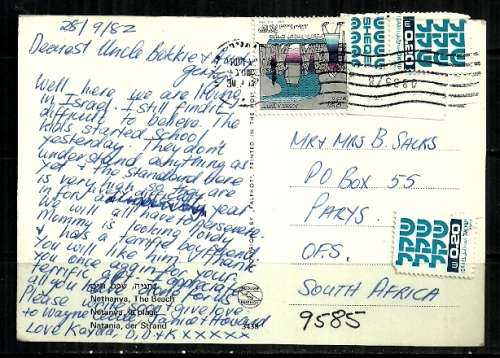 28/9/82
Dearest Uncle Bokkie &
Well here we are living
in Israel. I still find it
difficult to believe. The
kids started school
yesterday. They don't
understand anything as
yet & the standard here
is very high so they are
in for a year
We will all have to persevere.
Mommy is looking lovely
& has a terrific boyfriend.
You will like him. I thank
you once again for your
terrific
all you have done for us
Please give love
to Wayne & Howard
Love Kayla, D, D + K X X X X X
נתניה, שפת הימה
Nethanya, The Beach
Netanya, la plage
Natania, der Strand
3438
PALPHOT
SHEQEL
0.80
MR & MRS B. SACKS
PO BOX 55
PARYS.
OFS.
SOUTH AFRICA
9585
שקל
0.20